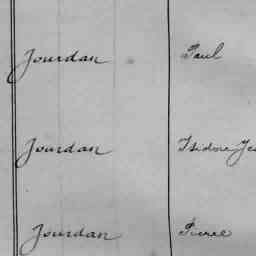 Jourdan Paul
Jourdan Isidore Je
Jourdan Pierre